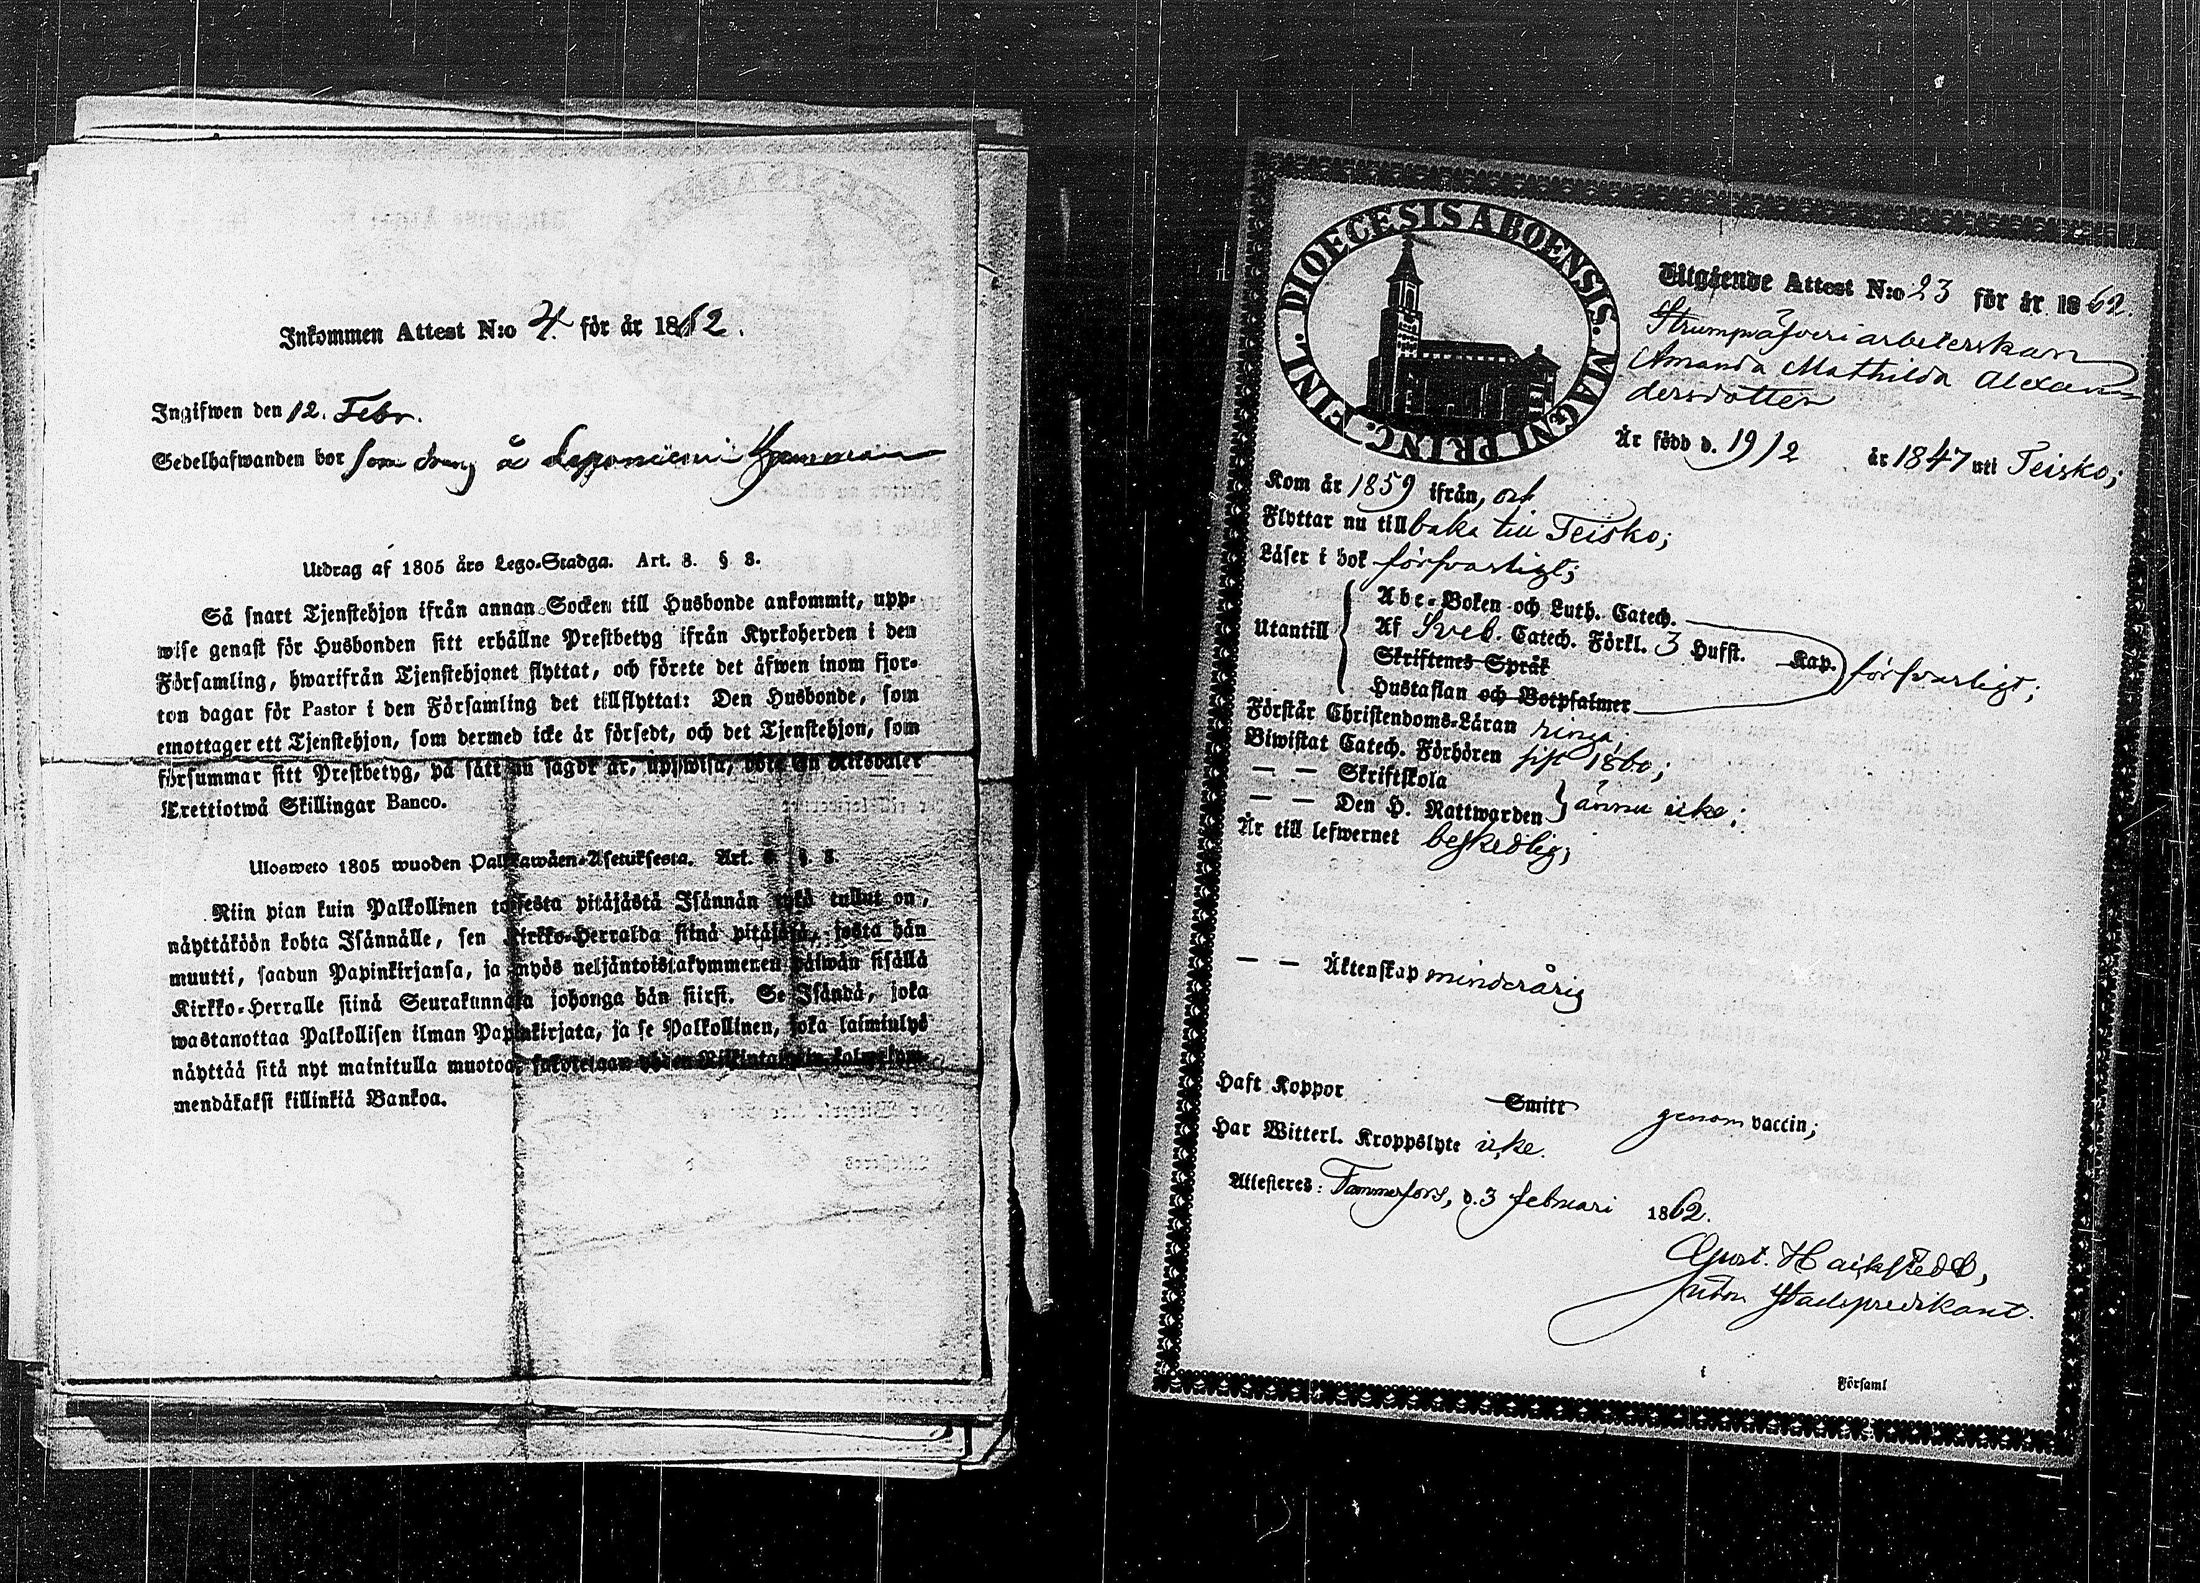 Inkommen Attest N:o 4 för år 1862.
Ingifwen den 12. Febr.
Sedelhafwanden bor som dräng å
Utdrag af 1805 års Lego-Stadga. Art. 3. § 3.
Så snart Tjenstehjon ifrån annan Socken till Husbonde ankommit, upp-
wise genast för Husbonden sitt erhållne Prestbetyg ifrån Kyrkoherden i den
Församling, hwarifrån Tjenstehjonet flyttat, och förete det äfwen inom fjor-
ton dagar för Pastor i den Församling det tillflyttat: Den Husbonde, som
emottager ett Tjenstehjon, som dermed icke är försedt, och det Tjenstehjon, som
försummar sitt Prestbetyg, på sätt nu sagdt är, uppwisa, böte en Riksdaler
Trettiotwå Skillingar Banco.
Ulosweto 1805 wuoden Palkkawäen-Asetuksesta. Art. § 3.
Niin pian kuin Palkollinen toisesta pitäjästä Isännän tykö tullut on,
näyttäköön kohta Isännälle, sen Kirkko-Herralda siinä pitäjäsä, josta hän
muutti, saadun Papinkirjansa, ja myös neljäntoistakymmenen päiwän sisällä
Kirkko-Herralle siinä Seurakunnasa johonga hän siirsi. Se Isändä, joka
wastanottaa Palkollisen ilman Papinkirjata, ja se Palkollinen, joka laiminlyö
näyttää sitä nyt mainitulla muotoa, sakotetaan yhden Riikintalarin kolmekym-
mendäkaksi killinkiä Bankoa.
FINL. DIOECESIS ABOENSIS. MAGNI PRINC.
Utgående Attest N:o 23 för år 1862.
Strumpväfveriarbeterskan
Amanda Mathilda Alexan-
dersdotter
Är född d. 19/2 år 1847 uti Teisko;
Kom år 1859 ifrån, och
Flyttar nu tillbaka till Teisko;
Läser i bok försvarligt;
Utantill
Abc-Boken och Luth. Catech.
Af Sveb. Catech. Förkl. 3 Hufst. Kap. försvarligt;
Skriftenes Språk
Hustaflan och Botpsalmer
Förstår Christendoms-Läran ringa;
Biwistat Catech. Förhören sist 1860;
— — Skriftskola
— — Den H. Nattwarden ännu icke;
Är till lefwernet beskedlig;
— — Äktenskap minderårig
Haft Koppor Smitt genom vaccin;
Har Witterl. Kroppslyte icke.
Attesteres: Tammerfors, d. 3 februari 1862.
Stadspredikant.
i Församl